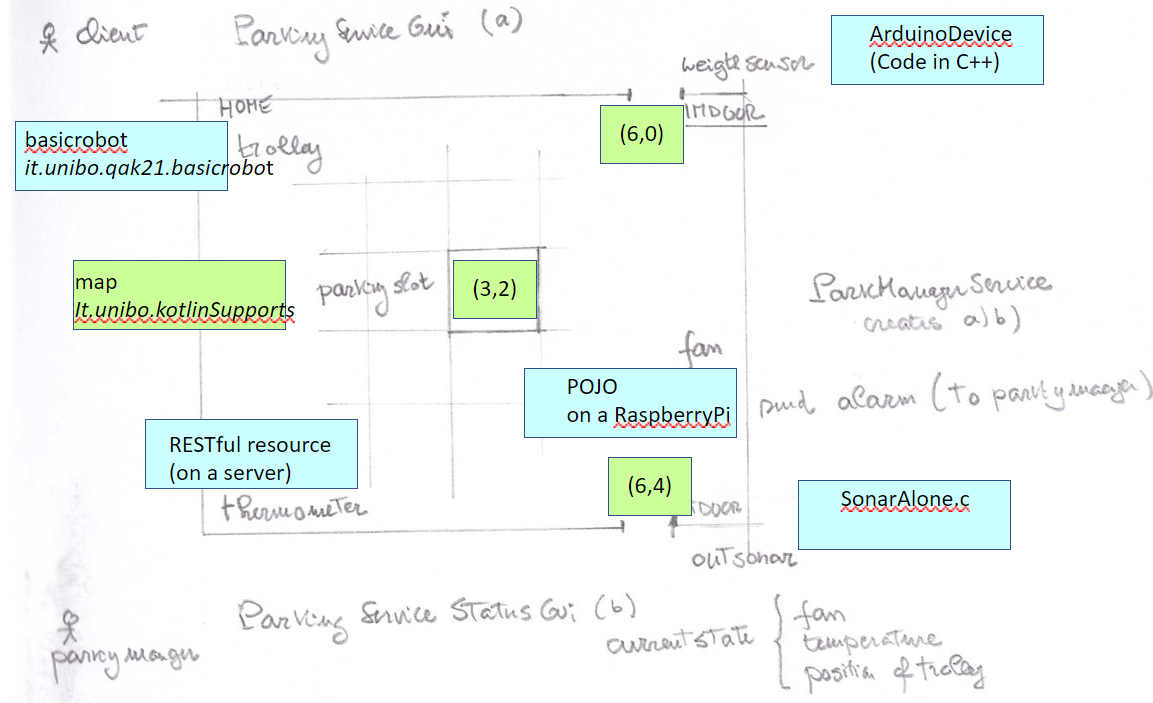 client
Parking Service Gui (a)
ArduinoDevice
(Code in C++)
weight sensor
HOME
INDOOR
(6,0)
basicrobot
it.unibo.qak21.basicrobot
trolley
map
It.unibo.kotlinSupports
parking slot
(3,2)
ParkManagerService
creates a) b)
fan
POJO
on a RaspberryPi
alarm (to
RESTful resource
(on a server)
(6,4)
SonarAlone.c
thermometer
TDOOR
outsonar
Parking Service Status Gui (b)
current state
fan
temperature
position of trolley